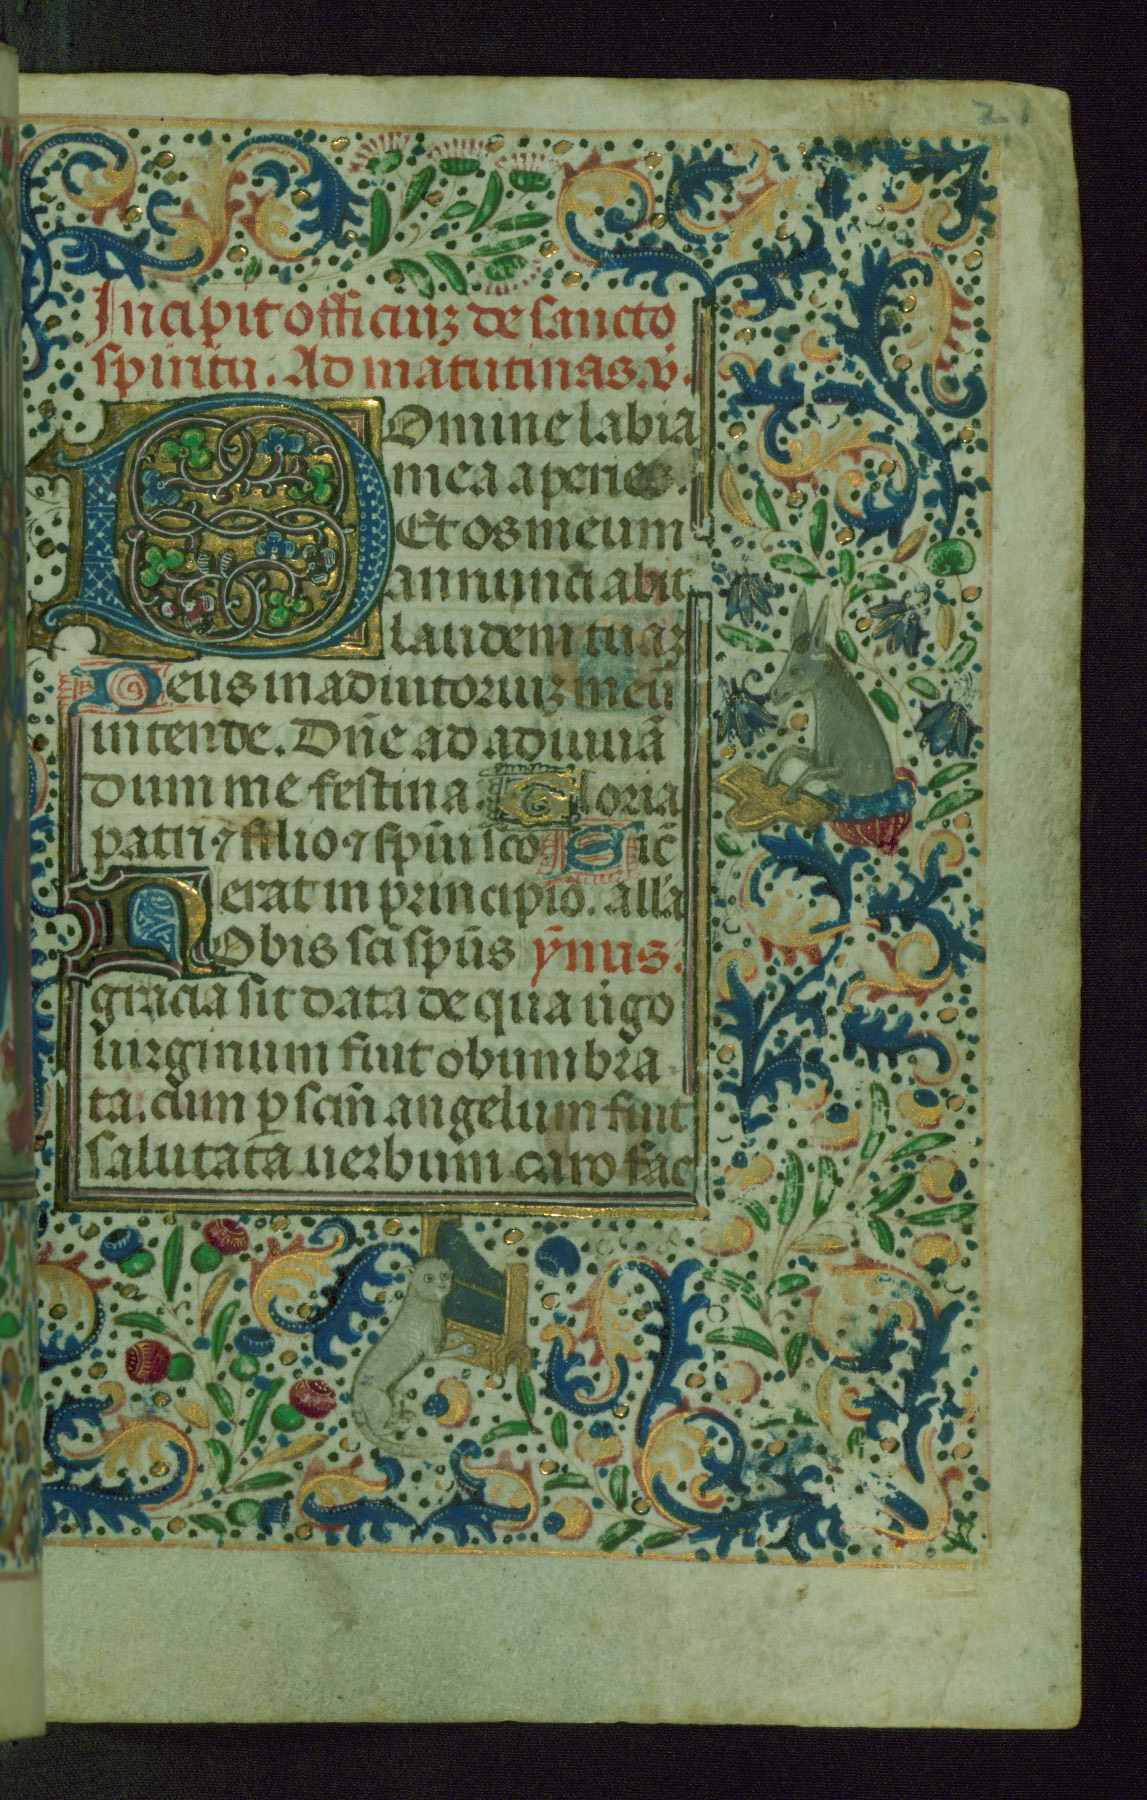 21
Incipit officiuz de sancto
spiritu. Ad matutinas. v̄.
Domine labia
mea aperies.
Et os meum
annunciabit
laudem tuaz
Deus in adiutoriuz meū
intende. Dn̄e ad adiuuā
dum me festina. Gloria
patri ⁊ filio ⁊ spūi sc̄o Sic̄
erat in principio. all'a
Nobis sc̄i sp̄us ȳnus.
gracia sit data de qua ūgo
uirginum fuit obumbra
ta. cum ꝑ sc̄m̄ angelum fuit
salutata uerbum caro fac